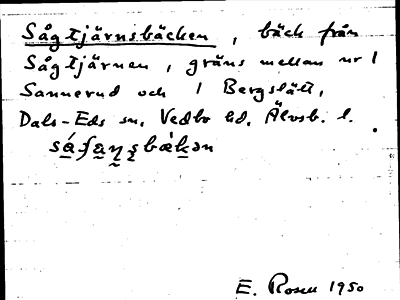 Sågtjärnsbäcken, bäck från
Sågtjärnen, gräns mellan nr 1
Sannerud och 1 Bergslätt,
Dals-Eds sn, Vedbo hd, Älvsb. l.
E. Rosen 1950